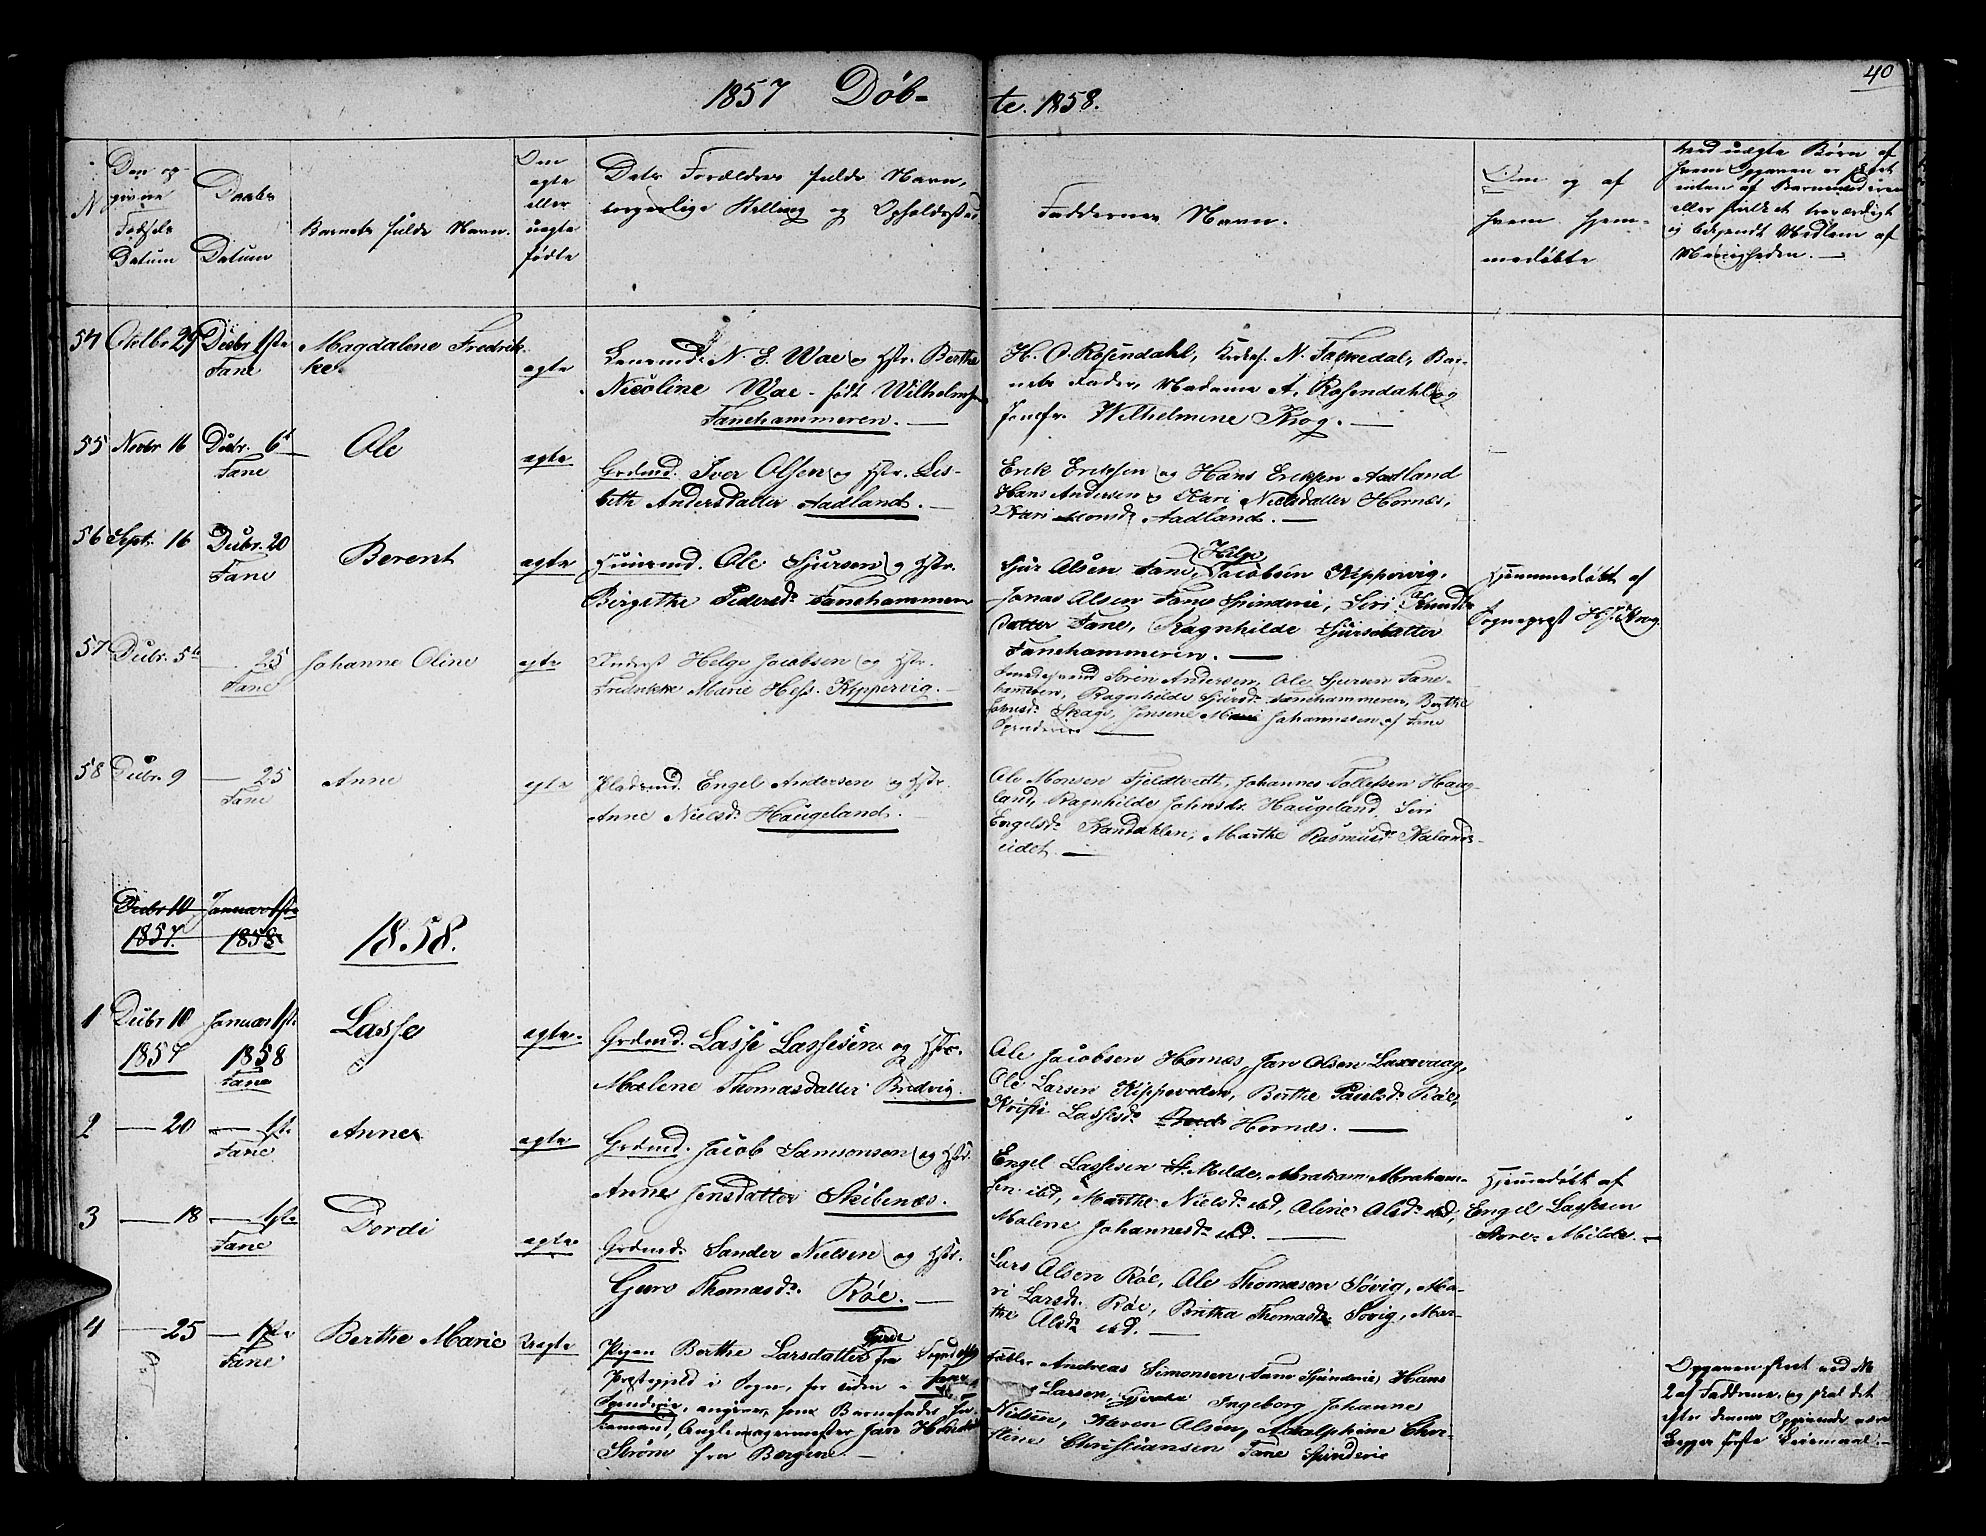 40
1857 Døb-
te. 1858.
N
Den op-
givne
Fødsels
Datum
Daabs
Datum
Barnets fulde Navn.
Om
ægte
eller
uægte
fødte
Dets Forældres fulde Navn,
borgerlige Stilling og Opholdssted
Faddernes Navn.
Om og af
hvem hjem-
medøbte
Ved uægte Børn af
hvem Opgaven er skeet
enten af Barnemoderen
eller hvilket troværdigt
og bekjendt Medlem af
Menigheden. —
54 Octbr 29 Decbr 1ste
Fane
Magdalene Fredrik-
ke.
ægte
Lensmd. N. E. Wae og Hstr. Berthe
Nicoline Wae - født Wilhelmsen
Fanehammeren. —
H. O. Rosendahl, N. Tarvedal, Bar-
nets Fader, Madame A. Rosendahl og
Jomfr. Wilhelmine Krog. —
55 Novbr 16 Decbr. 6te
Fane
Ole
ægte
Grdmd. Iver Olsen og Hstr. Lis-
beth Andersdatter Aadland. —
Erik Eriksen og Hans Eriksen Aadland
Hans Andersen og Kari Nielsdatter Hornæs,
Kari Monsdr. Aadland. —
56 Septr. 16 Decbr. 20
Fane
Berent
ægte
Huusmd. Ole Sjursen og Hstr.
Birgithe Pedersdr. Fanehammeren
Sjur Olsen Fane, Helge Jacobsen Kippervig,
Jonas Olsen Fane Spinderie, Siri Knuds-
datter Fane, Ragnhilde Sjursdatter
Fanehammeren. —
Hjemmedøbt af
Sognepræst Krog.
57 Decbr. 5te — 25
Fane
Johanne Oline
ægte
Helge Jacobsen og Hstr.
Fredrikke Marie Hess. Kippervig. —
Søren Andersen, Ole Sjursen Fane-
hammeren, Ragnhilde Sjursdr. Fanehammeren, Berthe
Johnsdr. Skage, Jensine Marie Johannesen af Fane
Spinderie —
58 Decbr. 9 — 25
Fane
Anne
ægte
Pladsmd. Engel Andersen og Hstr.
Anne Nielsdr. Haugeland. —
Ole Monsen Fjeldtvedt, Johannes Tollefsen Haug-
land, Ragnhilde Johnsdr. Haugeland, Siri
Engelsdr. Kandahlen, Marthe Rasmusdr. Kalands-
eidet. —
Decbr 10 Januar 1ste
1857. 1858
1858.
1 Decbr 10 Januar 1ste
1857 1858
Fane
Lasse
ægte.
Grdmd. Lasse Lassesen og Hstr.
Malene Thomasdatter Bredvig.
Ole Jacobsen Hornæs, Jan Olsen Laxevaag,
Ole Larsen Kipperveden, Berthe Paulsdr. Røe,
Kristi Lassesdr. Hornæs. —
2 — 20 — 1ste
Fane
Anne
ægte
Grdmd. Jacob Samsonsen og Hstr.
Anne Jensdatter Skeilenæs.
Engel Lassesen St. Milde, Abraham Abraham-
sen ibd, Marthe Nielsdr. ibd, Aline Olsdr. ibd,
Malene Johannesdr. ibd. —
Hjemmedøbt af
Engel Lassesen
Store Milde. —
3 — 18 — 1ste
Fane
Dordi
ægte
Grdmd. Sander Nielsen og Hstr.
Guro Thomasdr. Røe. —
Lars Olsen Røe, Ole Thomasen Søvig, Ma-
ri Larsdr. Røe, Britha Thomasdr. Søvig, Mar-
the Olsdr. ibd. —
4 — 25 — 17de
Fane
Berthe Marie
Uægte
Pigen Berthe Larsdatter fra Sogndals
Præstegjeld i Sogn, for tiden i Fane
Spinderie, angiver som Barnefader Fæ-
stemand, Jan
Strøm fra Bergen —
Andreas Simonsen Fane Spinderie, Hans
Larsen, Ingeborg Johanne
Nielsen, Karen Olsen, Adolphine Chri-
stine Christiansen Fane Spinderie
Opgaven skeet ved No
2 af Fadderne, og skal det
efter dennes Opgivende være
Begges første Leiermaal. —